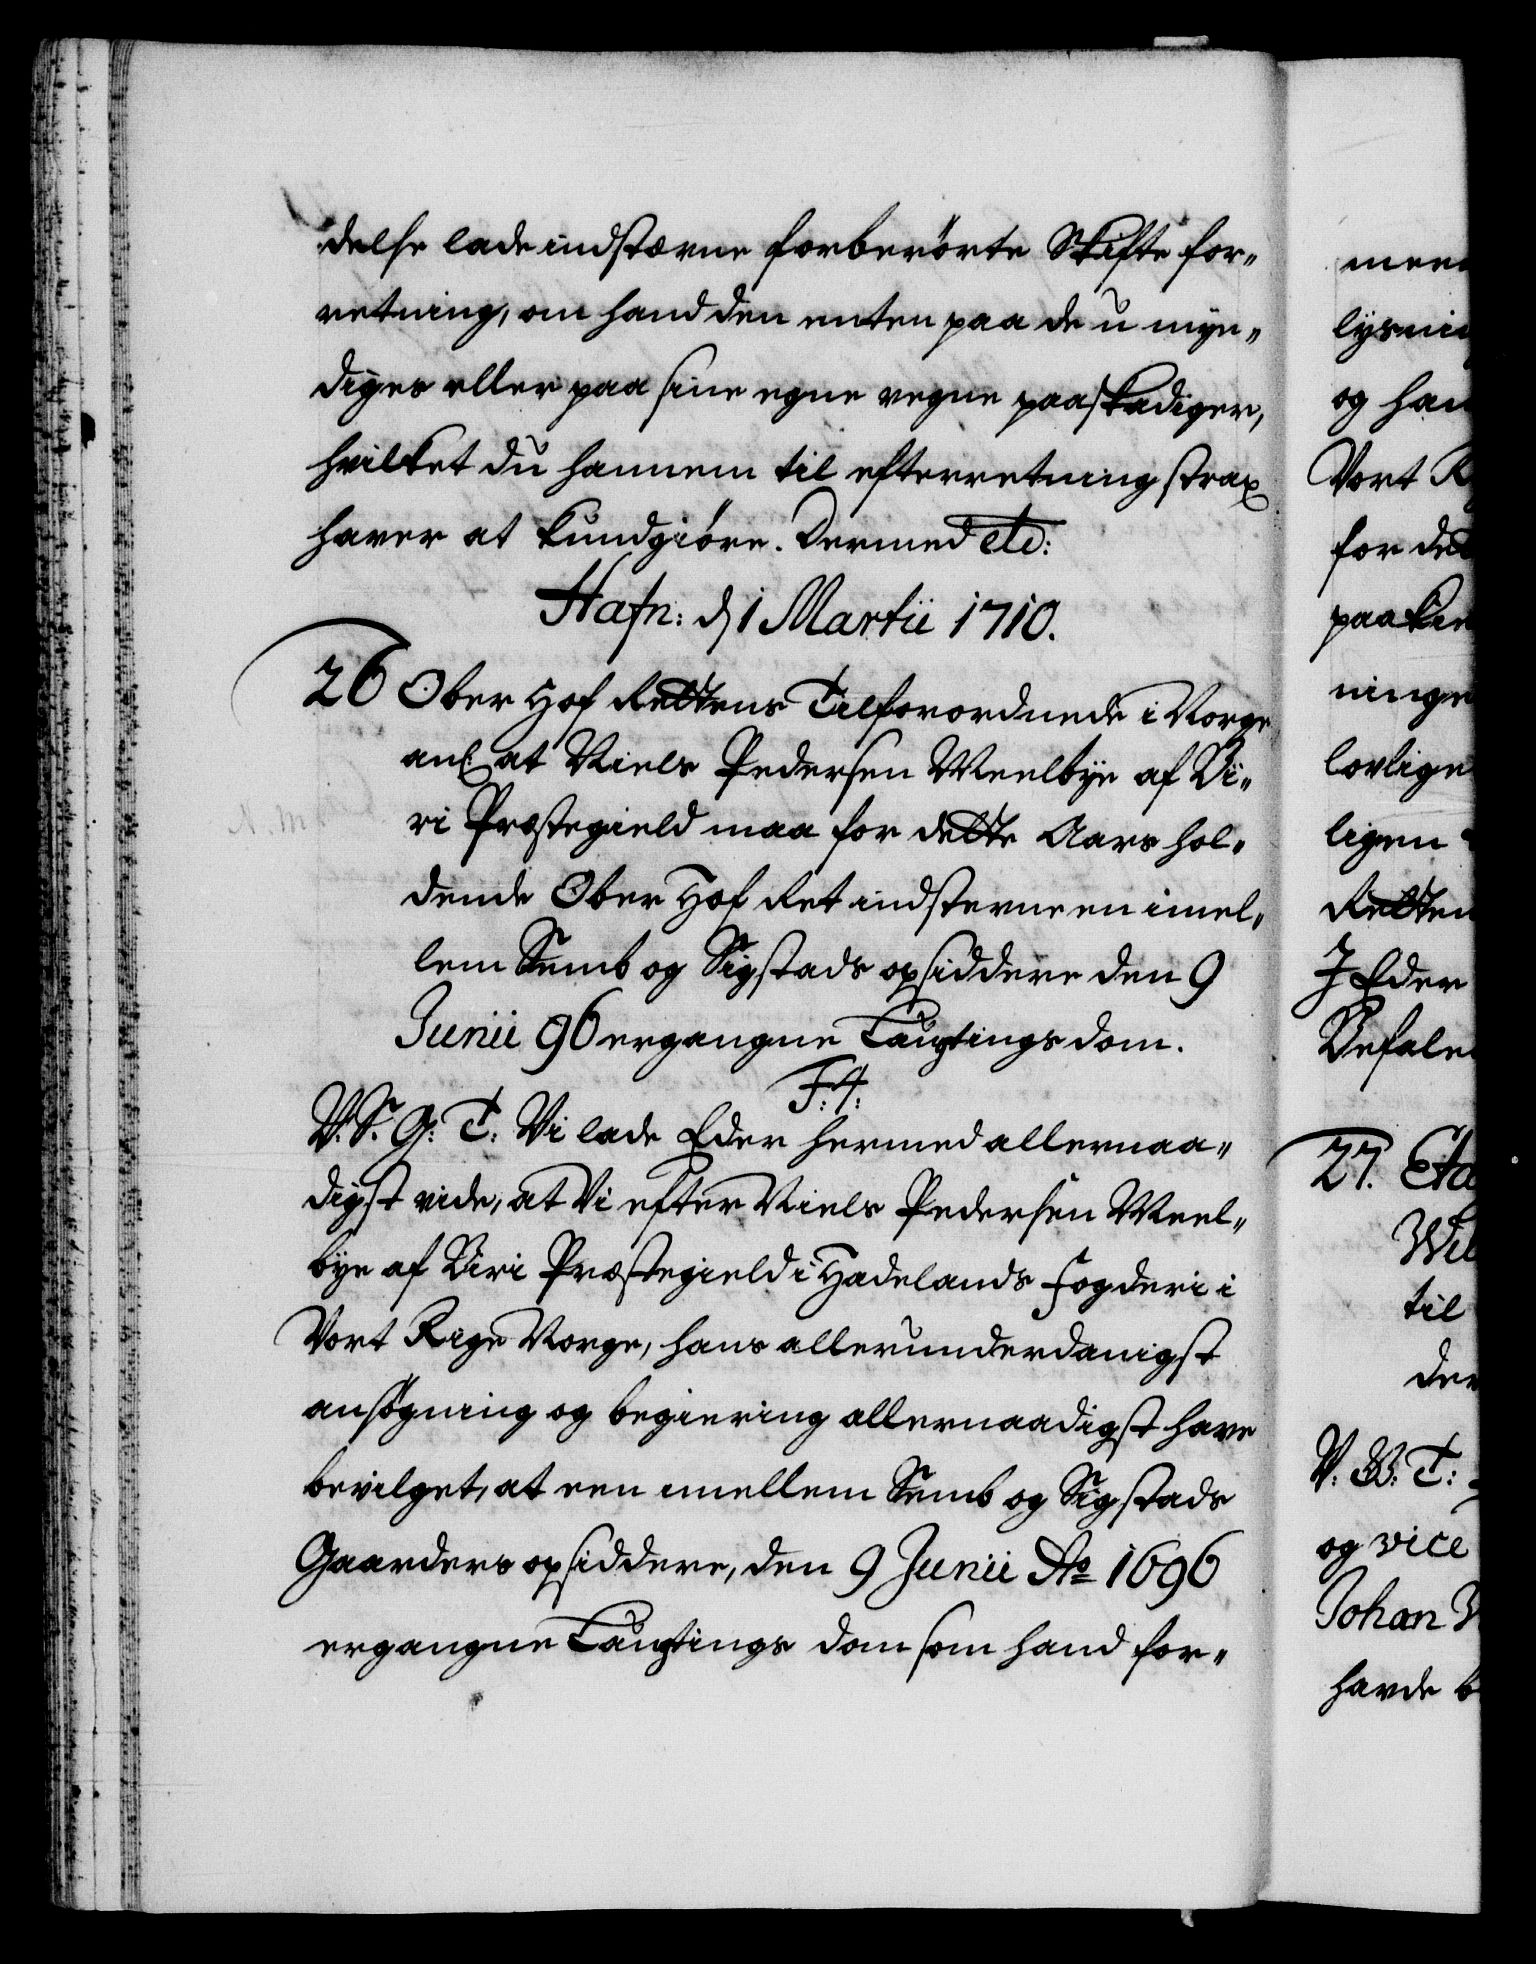 delse lade indstævne forberörte Skifte for„
retning, om hand den enten paa de u myn„
diges eller paa sine egne vegne paaskadiger,
hvilket du hannem til efterretning strax
haver at kundgiöre. Dermed etc:
Hafn: d 1 Martii 1710.
26 Ober Hof Rettens Tilforordnede i Norge
anl: at Niels Pedersen Meelbye af Bi„
ri Præstegield maa for dette Aars hol„
dende Ober Hof Ret indsterne en imel„
lem Semb og Sigstads opsiddere den 9
Junii 96 ergangne Laugtings dom.
F: 4:
V. S. G: T: Vi lade Eder hermed allernaa„
digst vide, at Vi efter Niels Pedersen Meel„
bye af Biri Præstegield i Hadelands Fogderi i
Vort Rige Norge, hans allerunderdanigst
ansögning og begiering allernaadigst have
bevilget, at een imellem Semb og Sigstads
Gaarders opsiddere, den 9 Junii Ao 1696
ergangne Laugtings dom som hand for„
N. M
meen
lysnin
og han
Vort R
for det
paakie
ninge
lovlige
ligen
Retten
J Eder
Befale
27. Eta
Wil
til
der
V. B: T:
og vice
Johan W
havde b